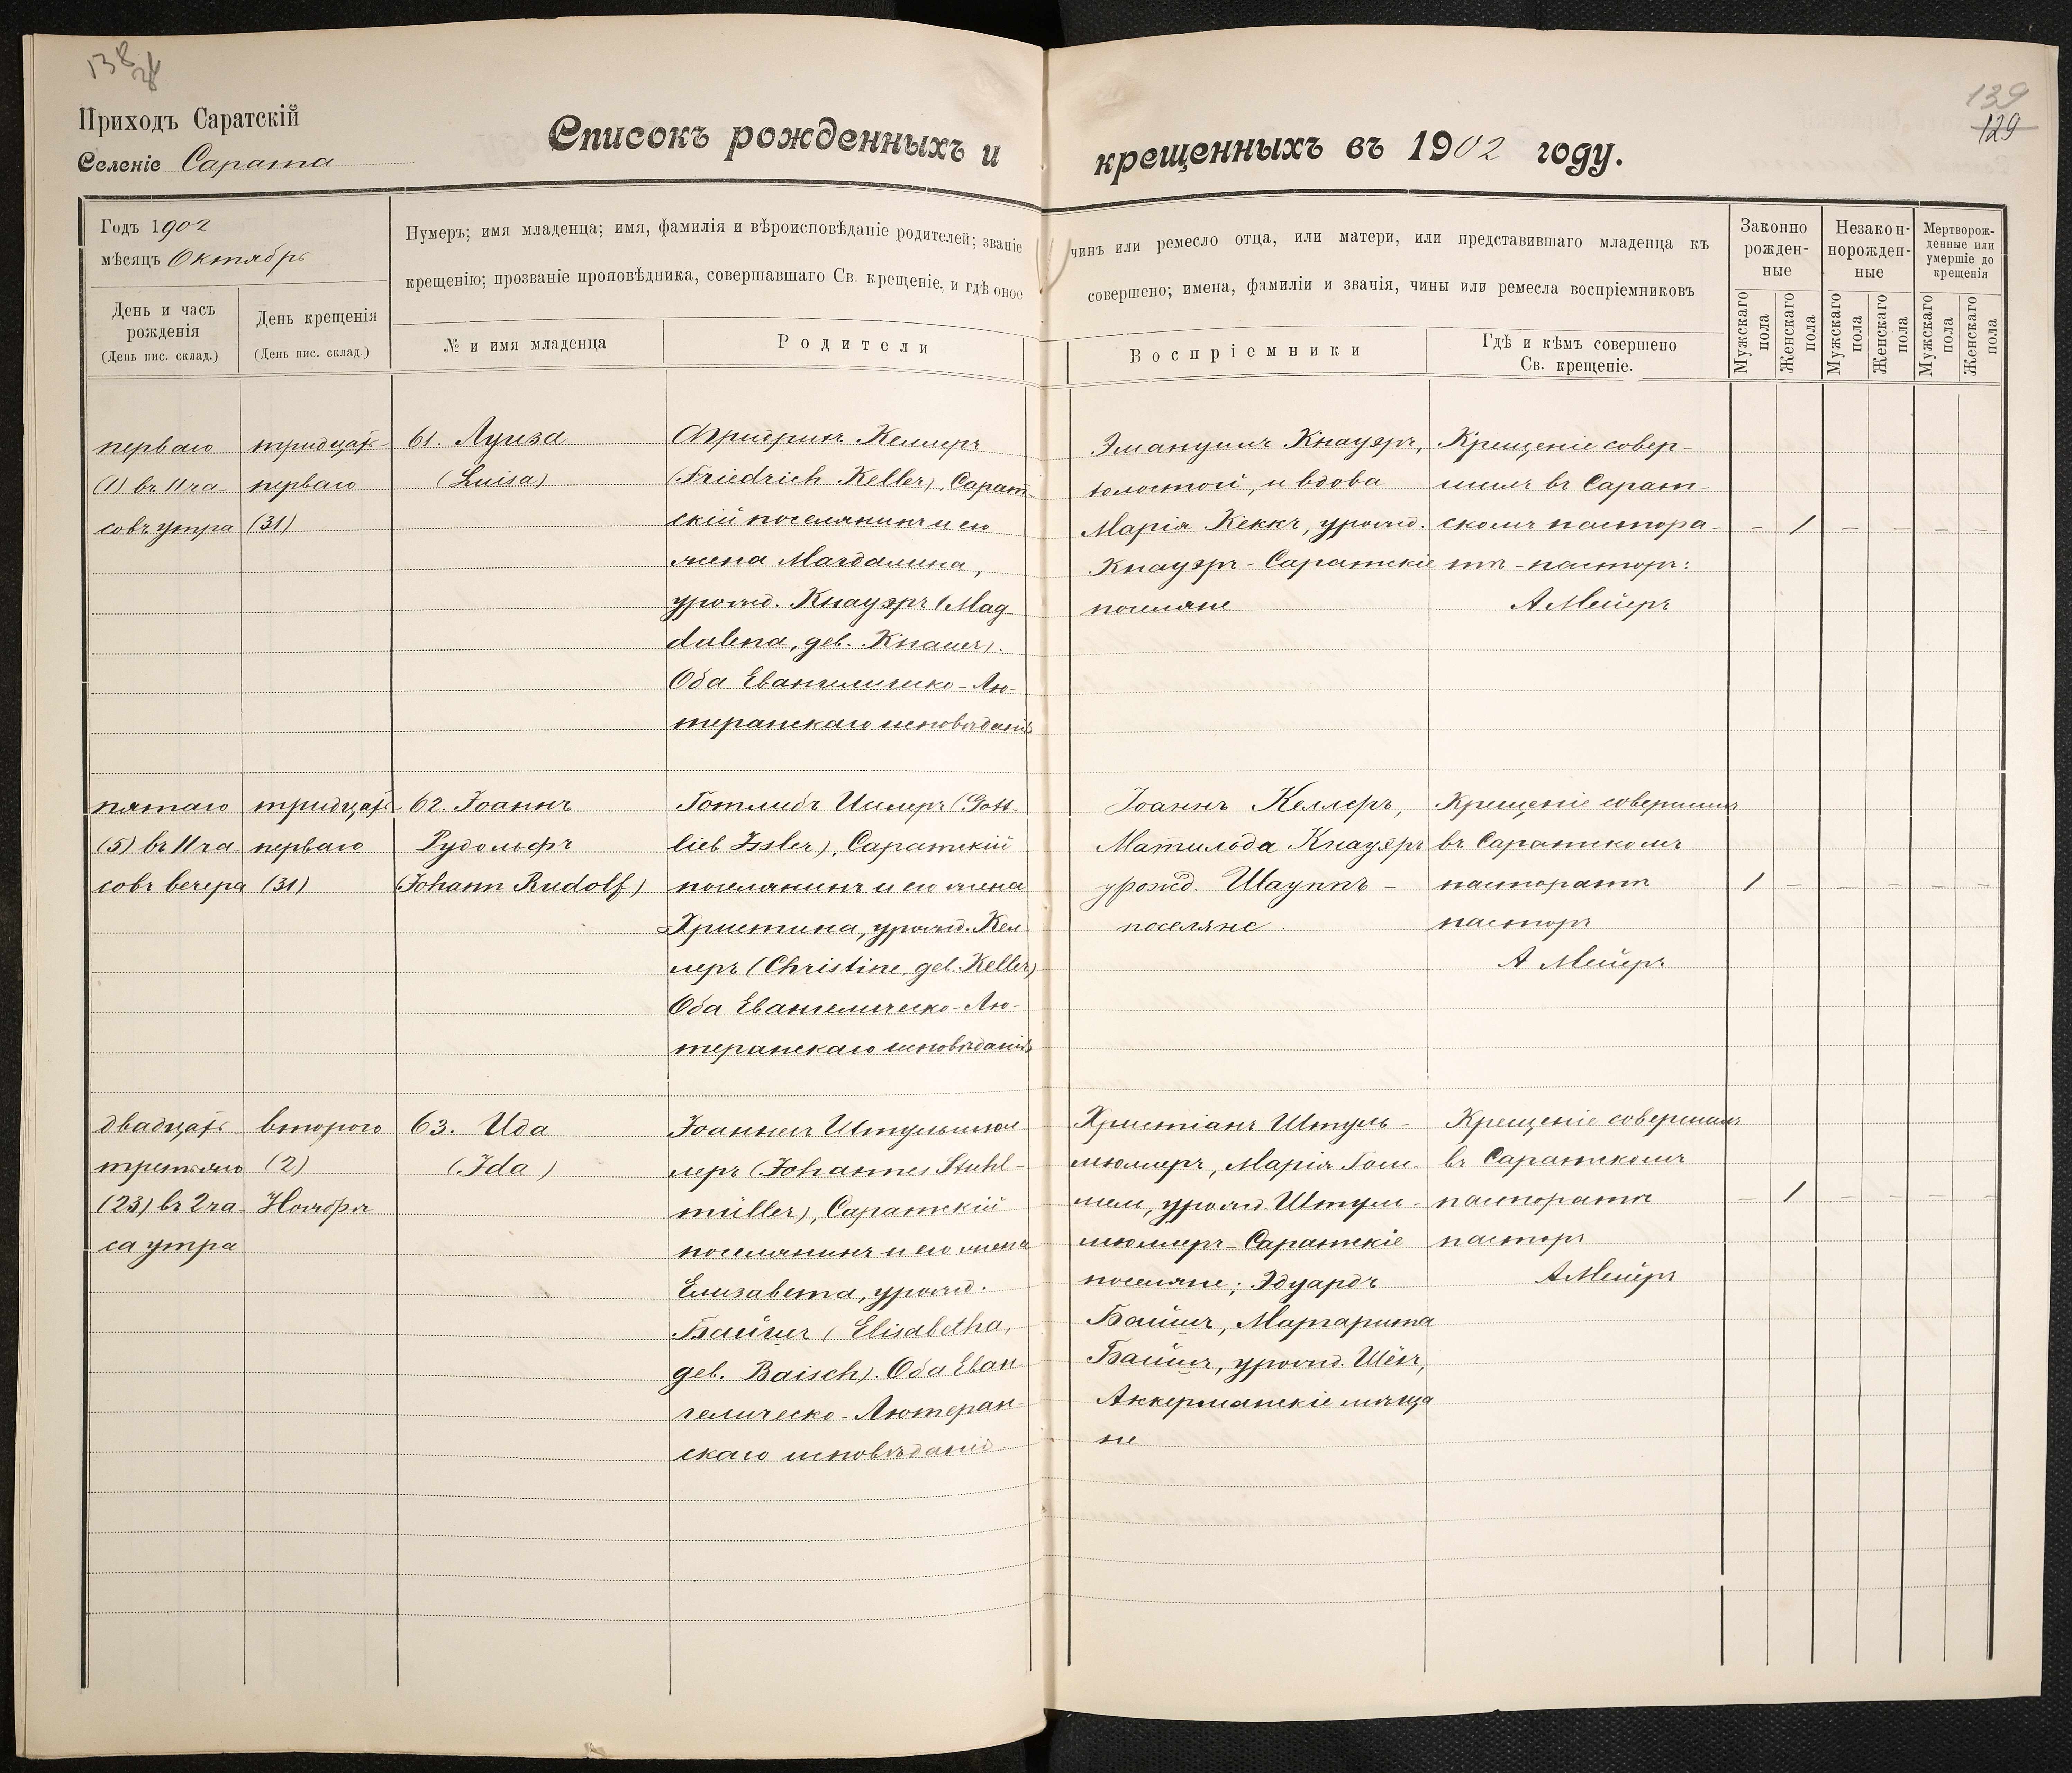 138
139
129
Приходъ Саратскій
Селеніе Сарата
Списокъ рожденныхъ и крещенныхъ въ 1902 году.
Годъ 1902
мѣсяцъ Октябрь
День и часъ
рожденія
(День пис. склад.)
День крещенія
(День пис. склад.)
Нумеръ; имя младенца; имя, фамилія и вѣроисповѣданіе родителей; званіе чинъ или ремесло отца, или матери, или представившаго младенца къ
крещенію; прозваніе проповѣдника, совершавшаго Св. крещеніе, и гдѣ оное совершено; имена, фамиліи и званія, чины или ремесла воспріемниковъ
№ и имя младенца
Родители
Воспріемники
Гдѣ и кѣмъ совершено
Св. крещеніе.
Законно
рожден-
ные
Незакон-
норожден-
ные
Мертворож-
денные или
умершіе до
крещенія
Мужскаго
пола
Женскаго
пола
Мужскаго
пола
Женскаго
пола
Мужскаго
пола
Женскаго
пола
перваго
(1) въ 11 ча-
совъ утра
тридцать
перваго
(31)
61. Луиза
(Luisa)
Фридрихъ Келлеръ
(Friedrich Keller), Сарат-
скій поселянинъ и его
жена Магдалина,
урожд. Кнауэръ (Mag
dalena, geb. Knauer).
Оба Евангелическо-Лю-
теранскаго исповѣданія
Эмануилъ Кнауэръ,
холостой, и вдова
Марія Кеккъ, урожд.
Кнауэръ - Саратскіе
поселяне
Крещеніе совер-
шилъ въ Сарат-
скомъ пастора-
тѣ - пасторъ:
А Мейеръ
- 1 - - - -
пятаго
(5) въ 11 ча-
совъ вечера
тридцать
перваго
(31)
62. Іоаннъ
Рудольфъ
(Johann Rudolf)
Готлибъ Ислеръ (Gott-
lieb Issler), Саратскій
поселянинъ и его жена
Христина, урожд. Кел-
леръ (Christine, geb. Keller)
Оба Евангелическо-Лю-
теранскаго исповѣданія
Іоаннъ Келлеръ,
Матильда Кнауэръ
урожд. Шауппъ -
поселяне.
Крещеніе совершилъ
въ Саратскомъ
пасторатѣ
пасторъ
А Мейеръ
1 - - - - -
двадцать
третьяго
(23) въ 2 ча-
са утра
второго
(2)
Ноября
63. Ида
(Ida)
Іоаннесъ Штульмюл-
леръ (Johannes Stuhl-
müller), Саратскій
поселянинъ и его жена
Елизавета, урожд.
Байшъ (Elisabetha,
geb. Baisch). Оба Еван-
гелическо-Лютеран-
скаго исповѣданія.
Христіанъ Штуль-
мюллеръ, Марія
урожд. Штул-
мюллеръ - Саратскіе
поселяне; Эдуардъ
Байшъ, Маргарита
Байшъ, урожд.
Аккерманскіе мѣща
не
Крещеніе совершилъ
въ Саратскомъ
пасторатѣ
пасторъ
А Мейеръ
- 1 - - - -